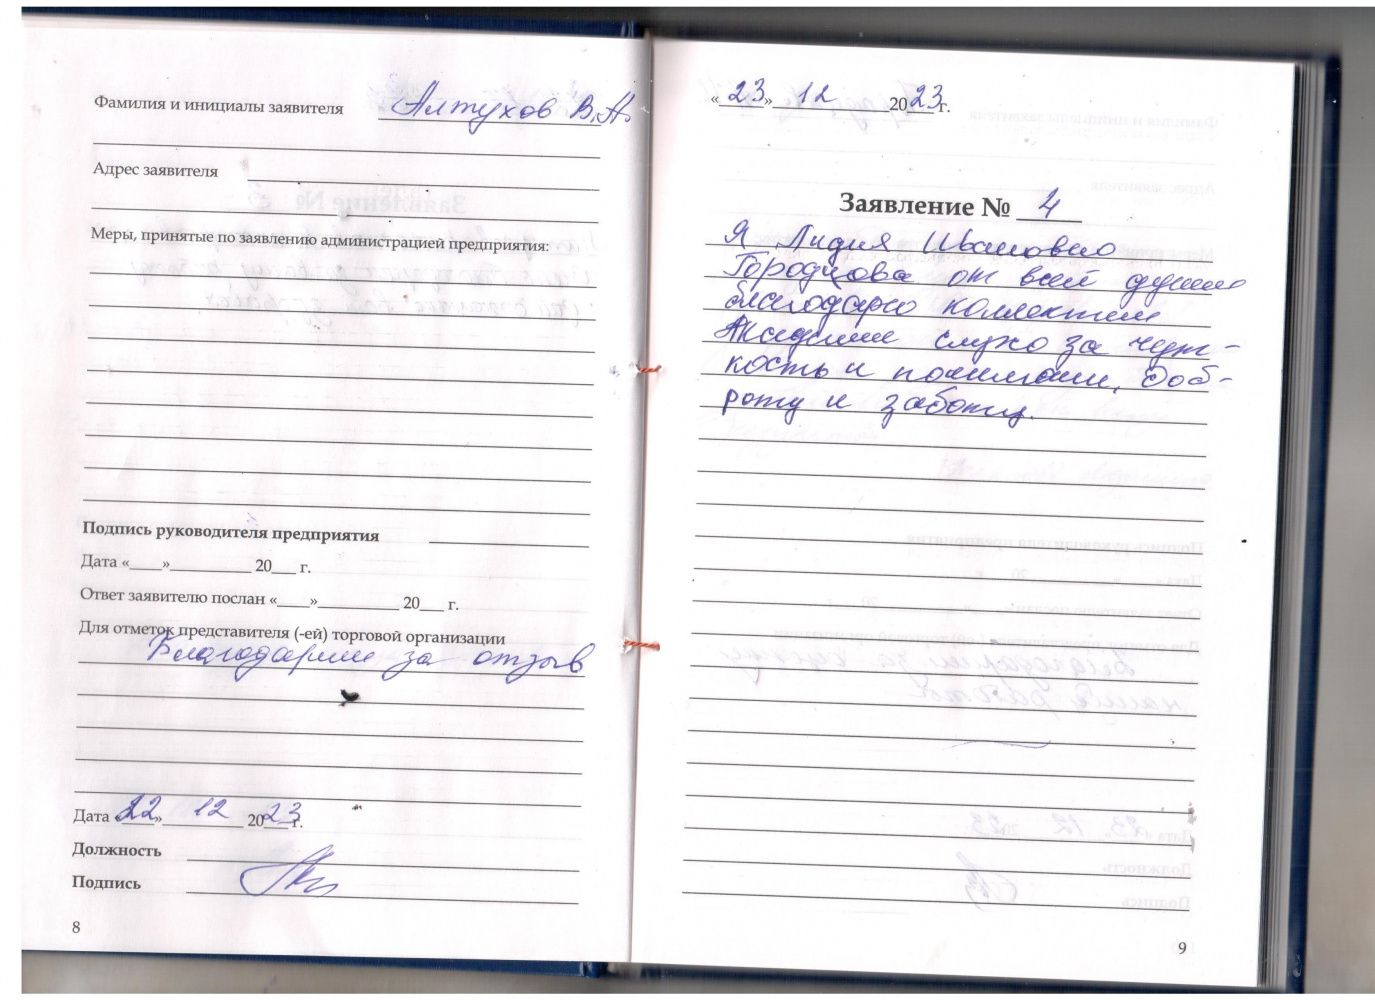 Фамилия и инициалы заявителя Алтухов В.А.
Адрес заявителя
Меры, принятые по заявлению администрацией предприятия:
Подпись руководителя предприятия
Дата «____»__________ 20___ г.
Ответ заявителю послан «____»__________ 20___ г.
Для отметок представителя (-ей) торговой организации
Благодарим за отзыв
Дата «22» 12 2023 г.
Должность
Подпись
8
«23» 12 2023 г.
Заявление № 4
Я Лидия Ивановна
Городцова от всей души
благодарю коллектив
Академии слуха за чут-
кость и понимание, доб-
роту и заботу.
9